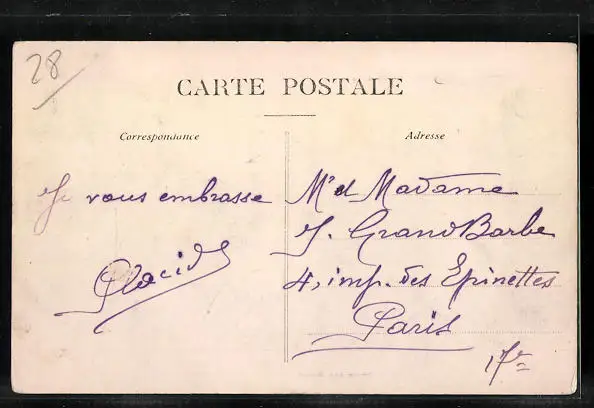 28
CARTE POSTALE
Correspondance
Adresse
Je vous embrasse
Placide
Mr et Madame
J. GrandBarbe
4, imp. des Epinettes
Paris
17e